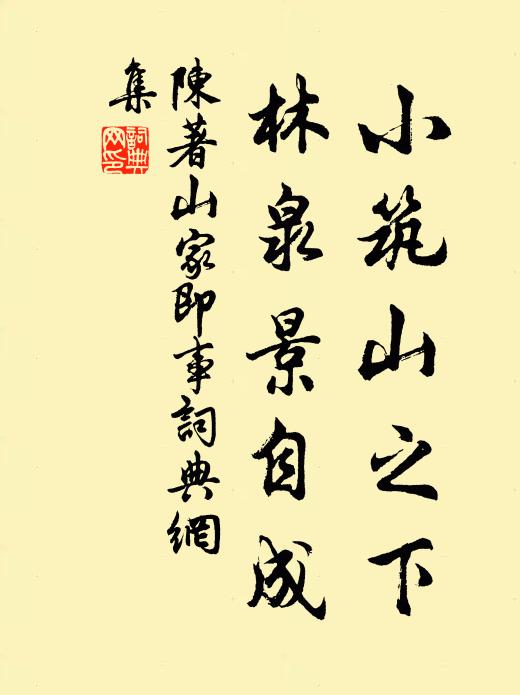 小筑山之下
林泉景自成
陳著山家即事詞典網
集
詞典
网印